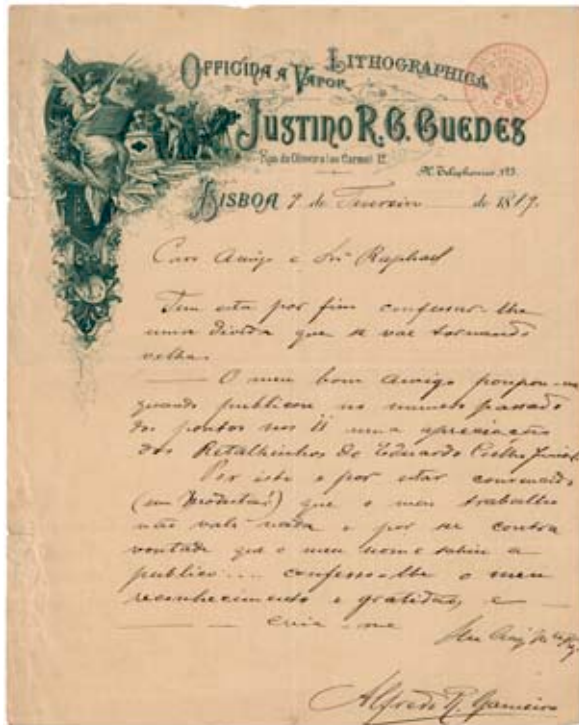 OFFICINA A VAPOR LITHOGRAPHICA
JUSTINO R. G. GUEDES
Rua da Oliveira (ao Carmo) 12
N. Telephonico 193
LISBOA 9 de Fevereiro de 1889
Caro Amigo e Snr Raphael
Tem esta por fim confessar-lhe
uma divida que se vae tornando
velha.
O meu bom amigo poupou-me
quando publicou no numero passado
dos pontos nos ii uma apreciação
dos Retalhinhos do Eduardo Coelho Junior
Por isto e por estar convencido
(sem modestia!) que o meu trabalho
não vale nada e por ser contra
vontade que o meu nome sahiu a
publico.... confesso-lhe o meu
reconhecimento e gratidão, e
creia-me
Seu
Alfredo R. Gameiro